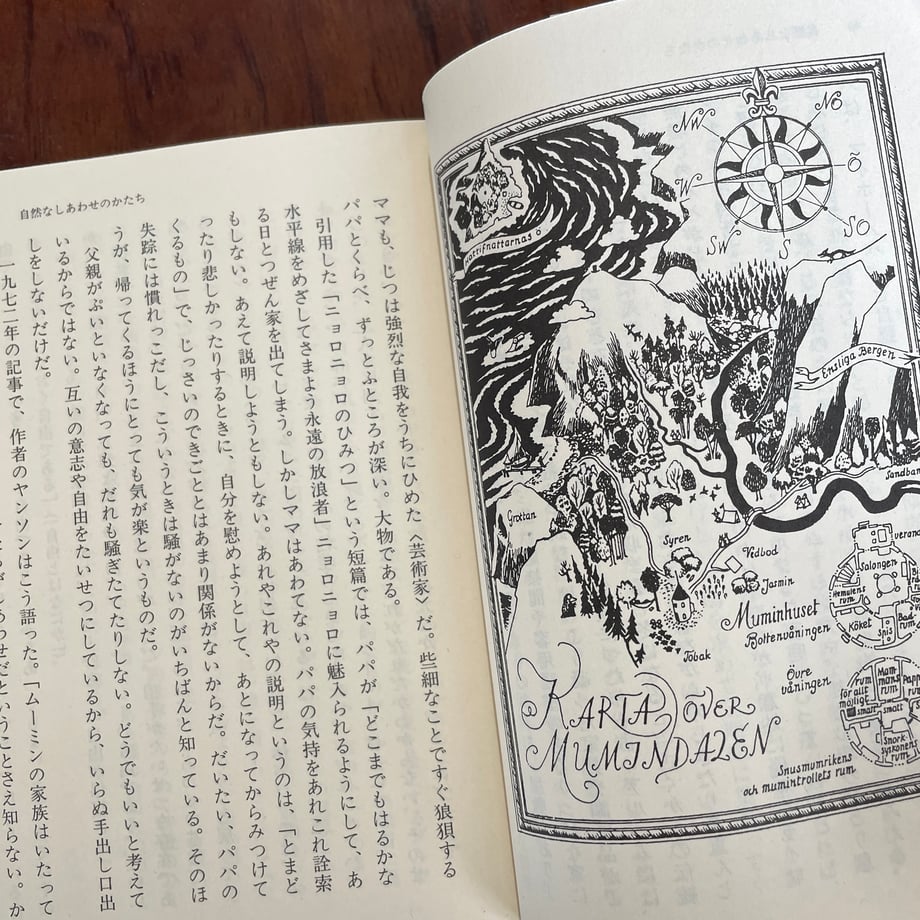 自然なしあわせのかたち
ママも、じつは強烈な自我をうちにひめた〈芸術家〉だ。些細なことですぐ狼狽する
パパとくらべ、ずっとふところが深い。大物である。
引用した「ニョロニョロのひみつ」という短篇では、パパが「どこまでもはるかな
水平線をめざしてさまよう永遠の放浪者」ニョロニョロに魅入られるようにして、あ
る日とつぜん家を出てしまう。しかしママはあわてない。パパの気持をあれこれ詮索
もしない。あえて説明しようともしない。あれやこれやの説明というのは、「とまど
ったり悲しかったりするときに、自分を慰めようとして、あとになってからみつけて
くるもの」で、じっさいのできごととはあまり関係がないからだ。だいたい、パパの
失踪には慣れっこだし、こういうときは騒がないのがいちばんと知っている。そのほ
うが、帰ってくるほうにとっても気が楽というものだ。
父親がぷいといなくなっても、だれも騒ぎたてたりしない。どうでもいいと考えて
いるからではない。互いの意志や自由をたいせつにしているから、いらぬ手出し口出
しをしないだけだ。
一九七二年の記事で、作者のヤンソンはこう語った。「ムーミンの家族はいたって
しあわせだということさえ知らない。か
NW
NÖ
W
Ö
SW
S
SO
Hattifnattarnas Ö
Ensliga Bergen
Sandban
Grottan
Syren
Vedbod
Jasmin
Tobak
Muminhuset
Bottenvåningen
veran
Salongen
Hemulens rum
Köket
Spis
Bad-
rum
Övre
våningen
rum
för allt
möjligt
Mam-
mans
rum
Papp
smatt
Snork-
syskonens
rum
Snusmumrikens
och mumintrollets rum
KARTA ÖVER
MUMINDALEN